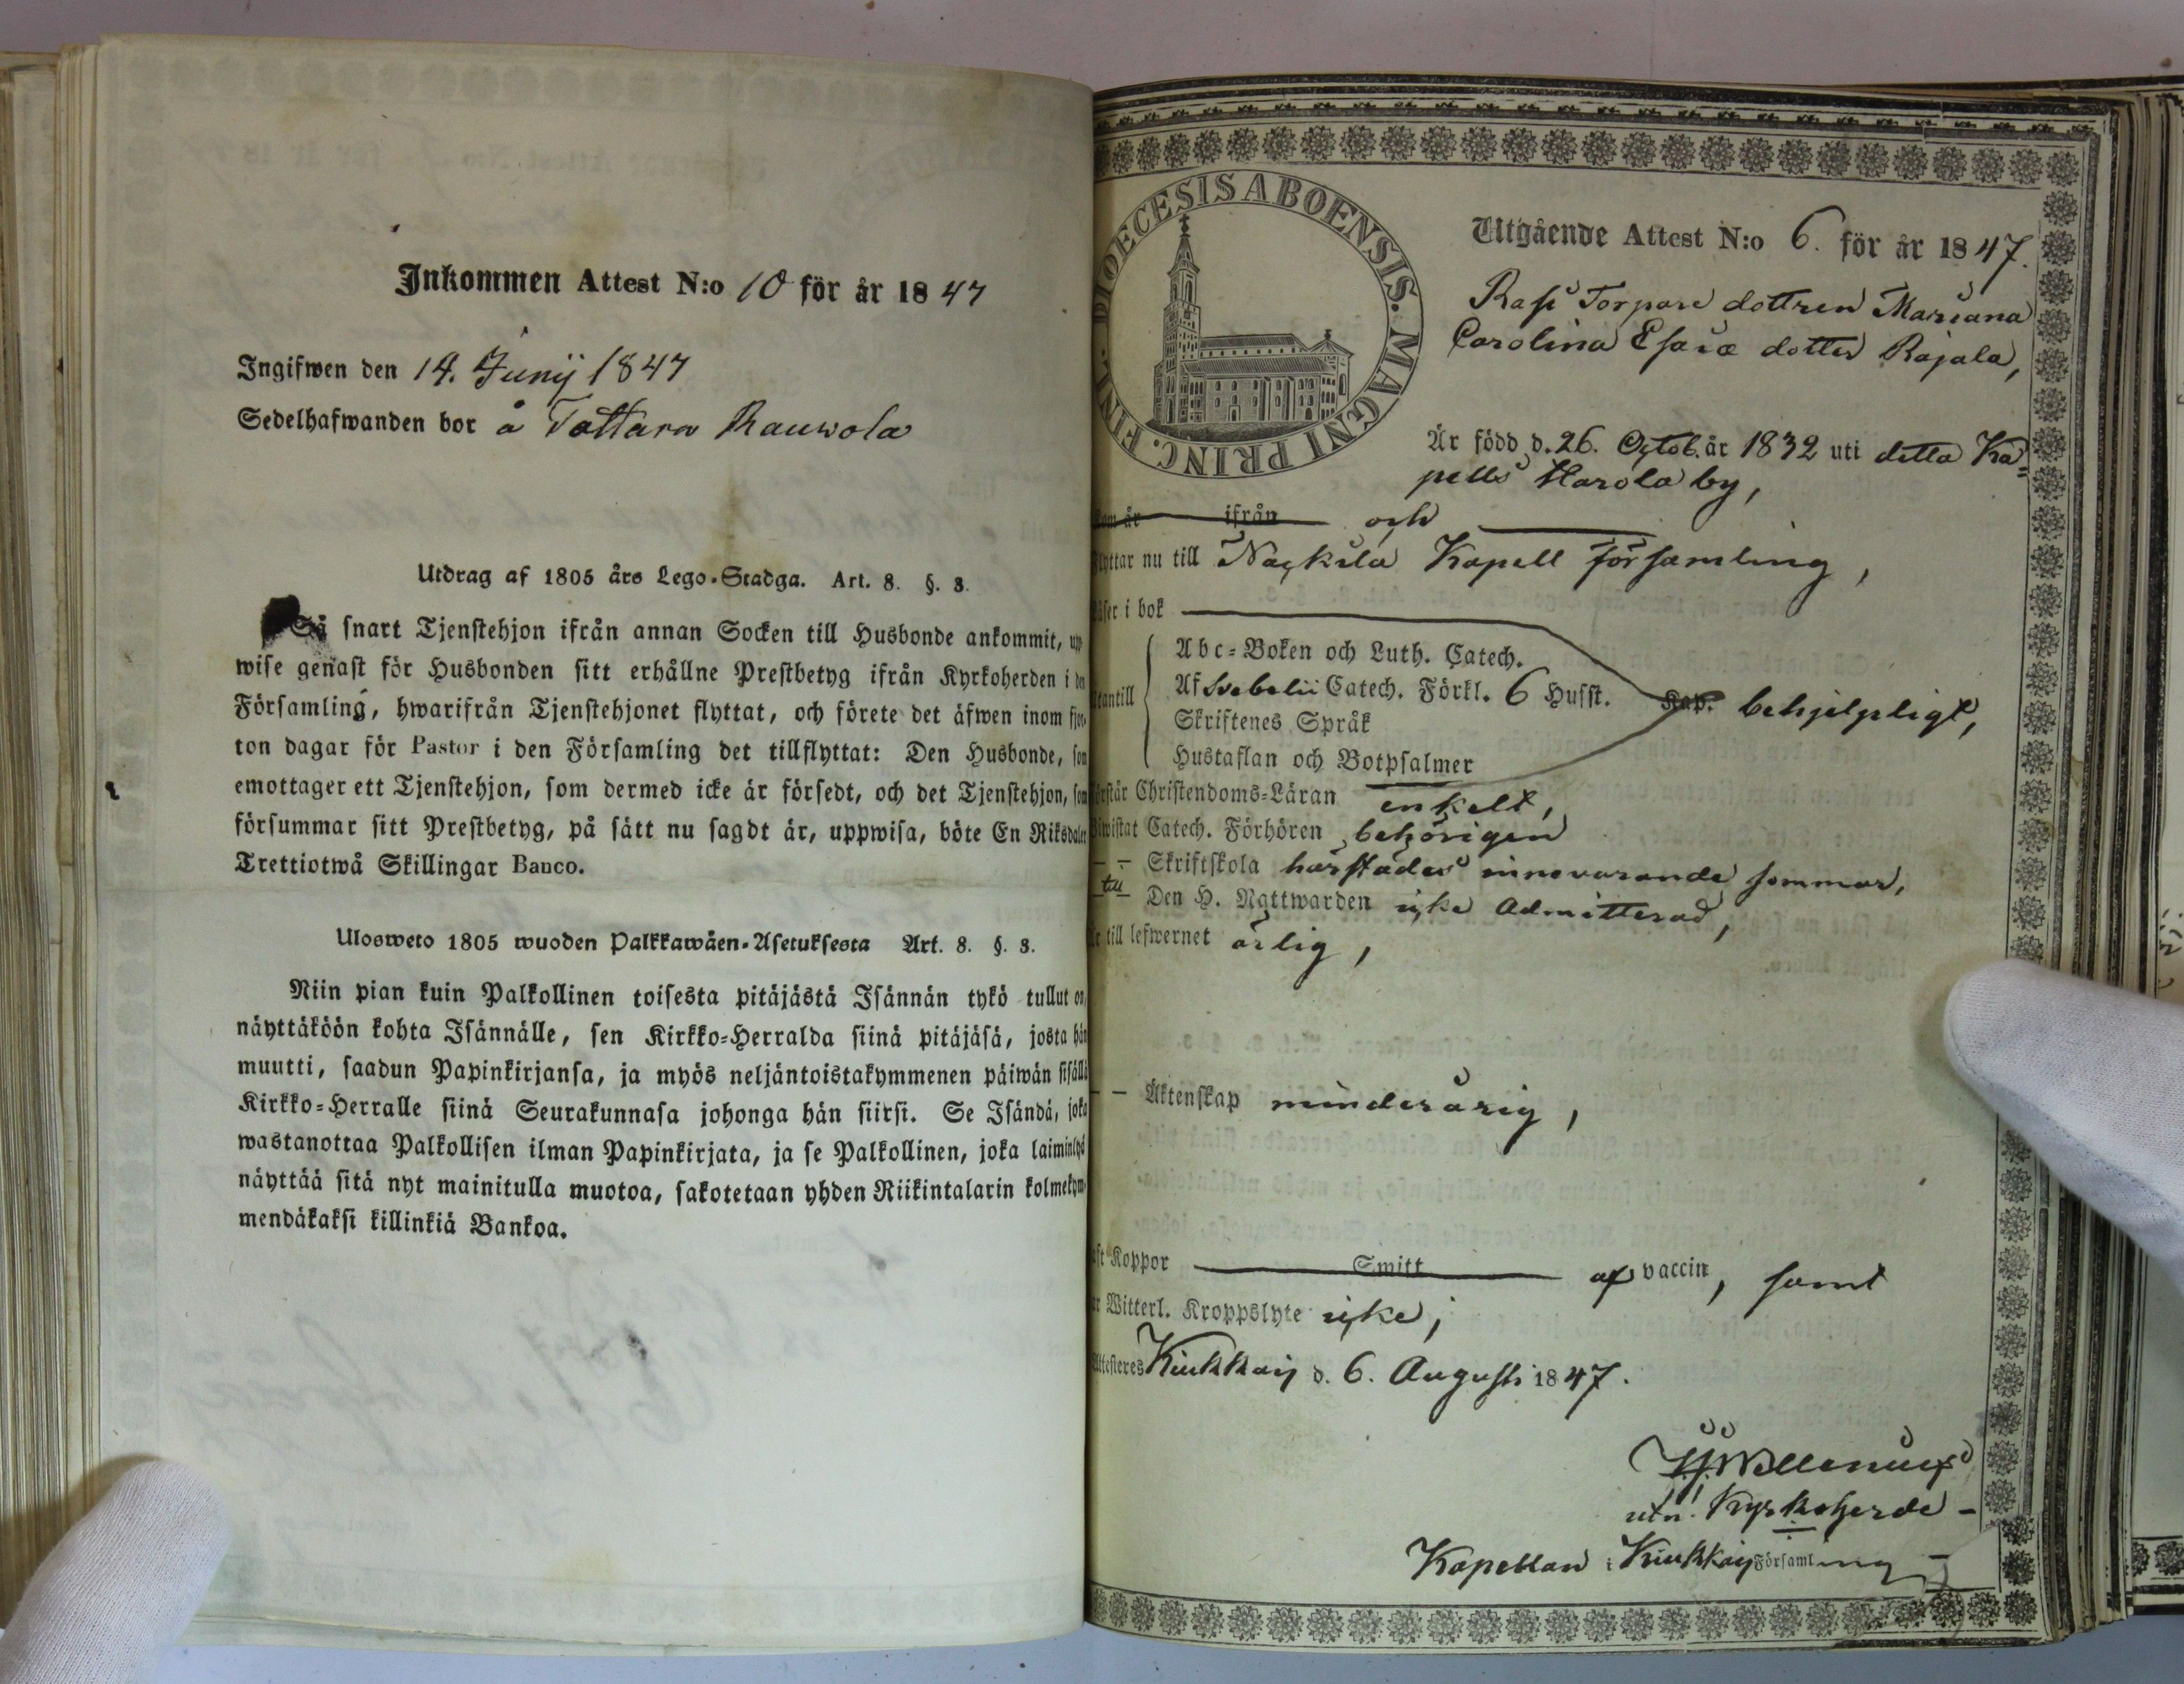 Inkommen Attest N:o 10 för år 1847
Ingifwen den 14. Junij 1847
Sedelhafwanden bor å Tattara Rauwola
Utdrag af 1805 års Lego-Stadga. Art. 8. §. 8.
Så snart Tjenstehjon ifrån annan Socken till Husbonde ankommit, upp
wise genast för Husbonden sitt erhållne Prestbetyg ifrån Kyrkoherden i den
Församling, hwarifrån Tjenstehjonet flyttat, och förete det äfwen inom fjor-
ton dagar för Pastor i den Församling det tillflyttat: Den Husbonde, som
emottager ett Tjenstehjon, som dermed icke är försedt, och det Tjenstehjon, som
försummar sitt Prestbetyg, på sätt nu sagdt är, uppwisa, böte En Riksdaler
Trettiotwå Skillingar Banco.
Ulosweto 1805 wuoden Palkkawäen-Asetuksesta Art. 8. §. 8.
Niin pian kuin Palkollinen toisesta pitäjästä Isännän tykö tullut on,
näyttäköön kohta Isännälle, sen Kirkko-Herralda siinä pitäjäsä, josta hän
muutti, saadun Papinkirjansa, ja myös neljäntoistakymmenen päiwän sisällä
Kirkko-Herralle siinä Seurakunnasa johonga hän siirsi. Se Isändä, joka
wastanottaa Palkollisen ilman Papinkirjata, ja se Palkollinen, joka laiminlyö
näyttää sitä nyt mainitulla muotoa, sakotetaan yhden Riikintalarin kolmekym-
mendäkaksi killinkiä Bankoa.
DIOECESIS ABOENSIS. MAGNI PRINC. FINL.
Utgående Attest N:o 6. för år 1847.
Rasi Torpare dottren Mariana
Carolina Esaiæ dotter Rajala,
Är född d. 26. Octob. år 1832 uti detta Ka=
pells Harola by,
ifrån och
Flyttar nu till Nackila Kapell församling,
Läser i bok
Abc-Boken och Luth. Catech.
utantill Af Svebelii Catech. Förkl. 6 Husst. Kap. behjelpligt,
Skriftenes Språk
Hustaflan och Botpsalmer
Förstår Christendoms-Läran enkelt,
Biwistat Catech. Förhören behörigen
— — Skriftskola härstädes innevarande sommar,
till Den H. Nattwarden icke admitterad,
Är till lefwernet ärlig,
— — Äktenskap minderårig,
Koppor Smitt af vaccin, samt
Witterl. Kroppslyte icke;
Attesteres Kiukkais d. 6. Augusti 1847.
utn. Kyrkoherde –
Kapellan i Kiukkais Församling –